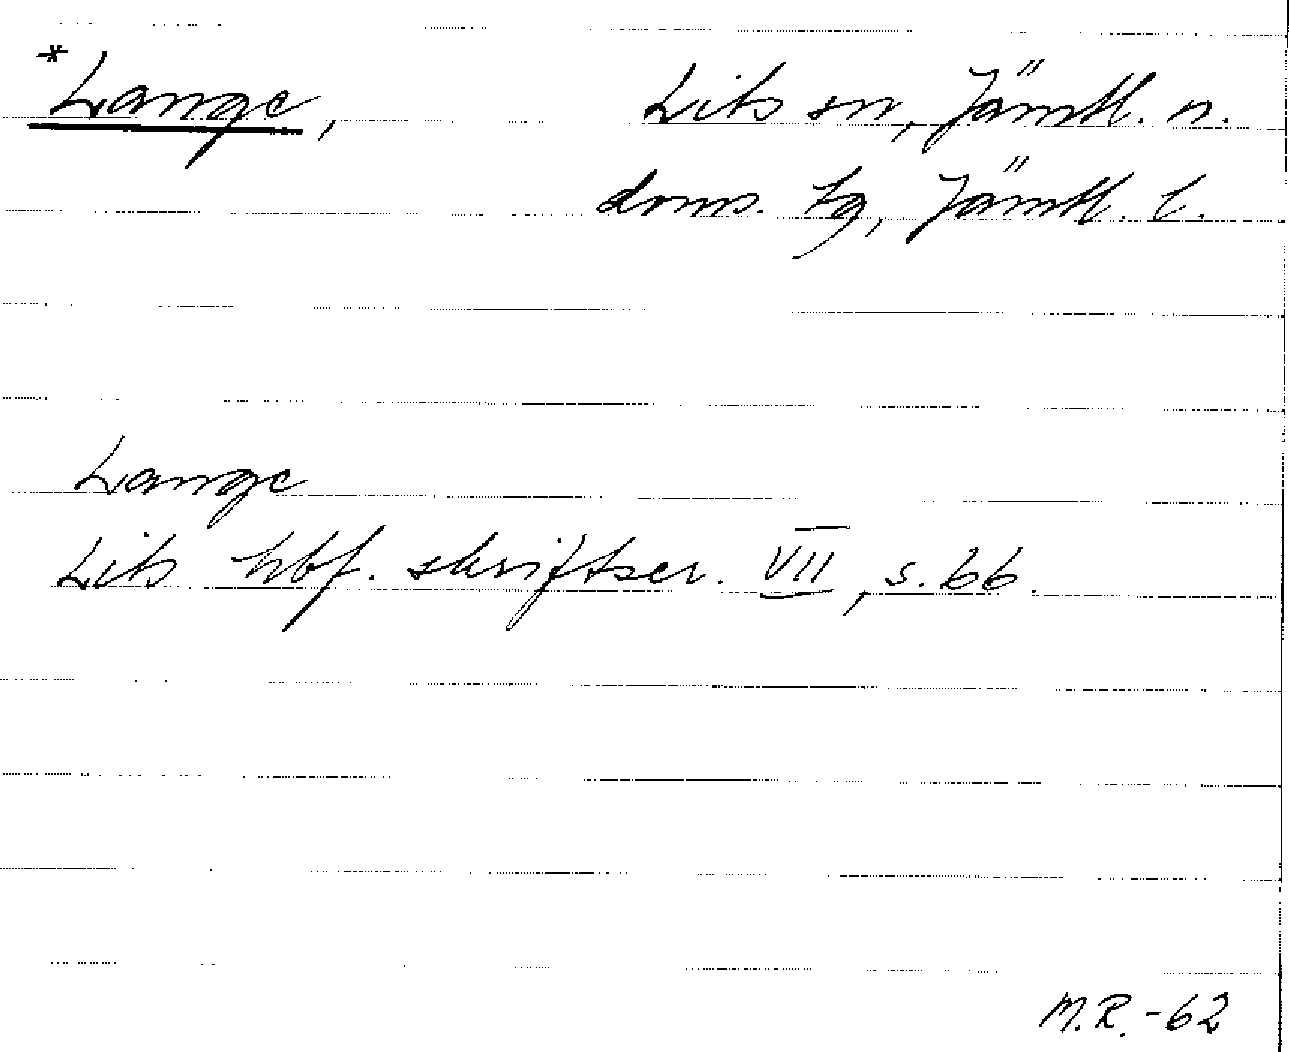 *Lange, Lits sn, Jämtl. n.
doms. tg, Jämtl. l.
Lange
Lits hbf. skriftser. VII, s. 66.
M.R. -62